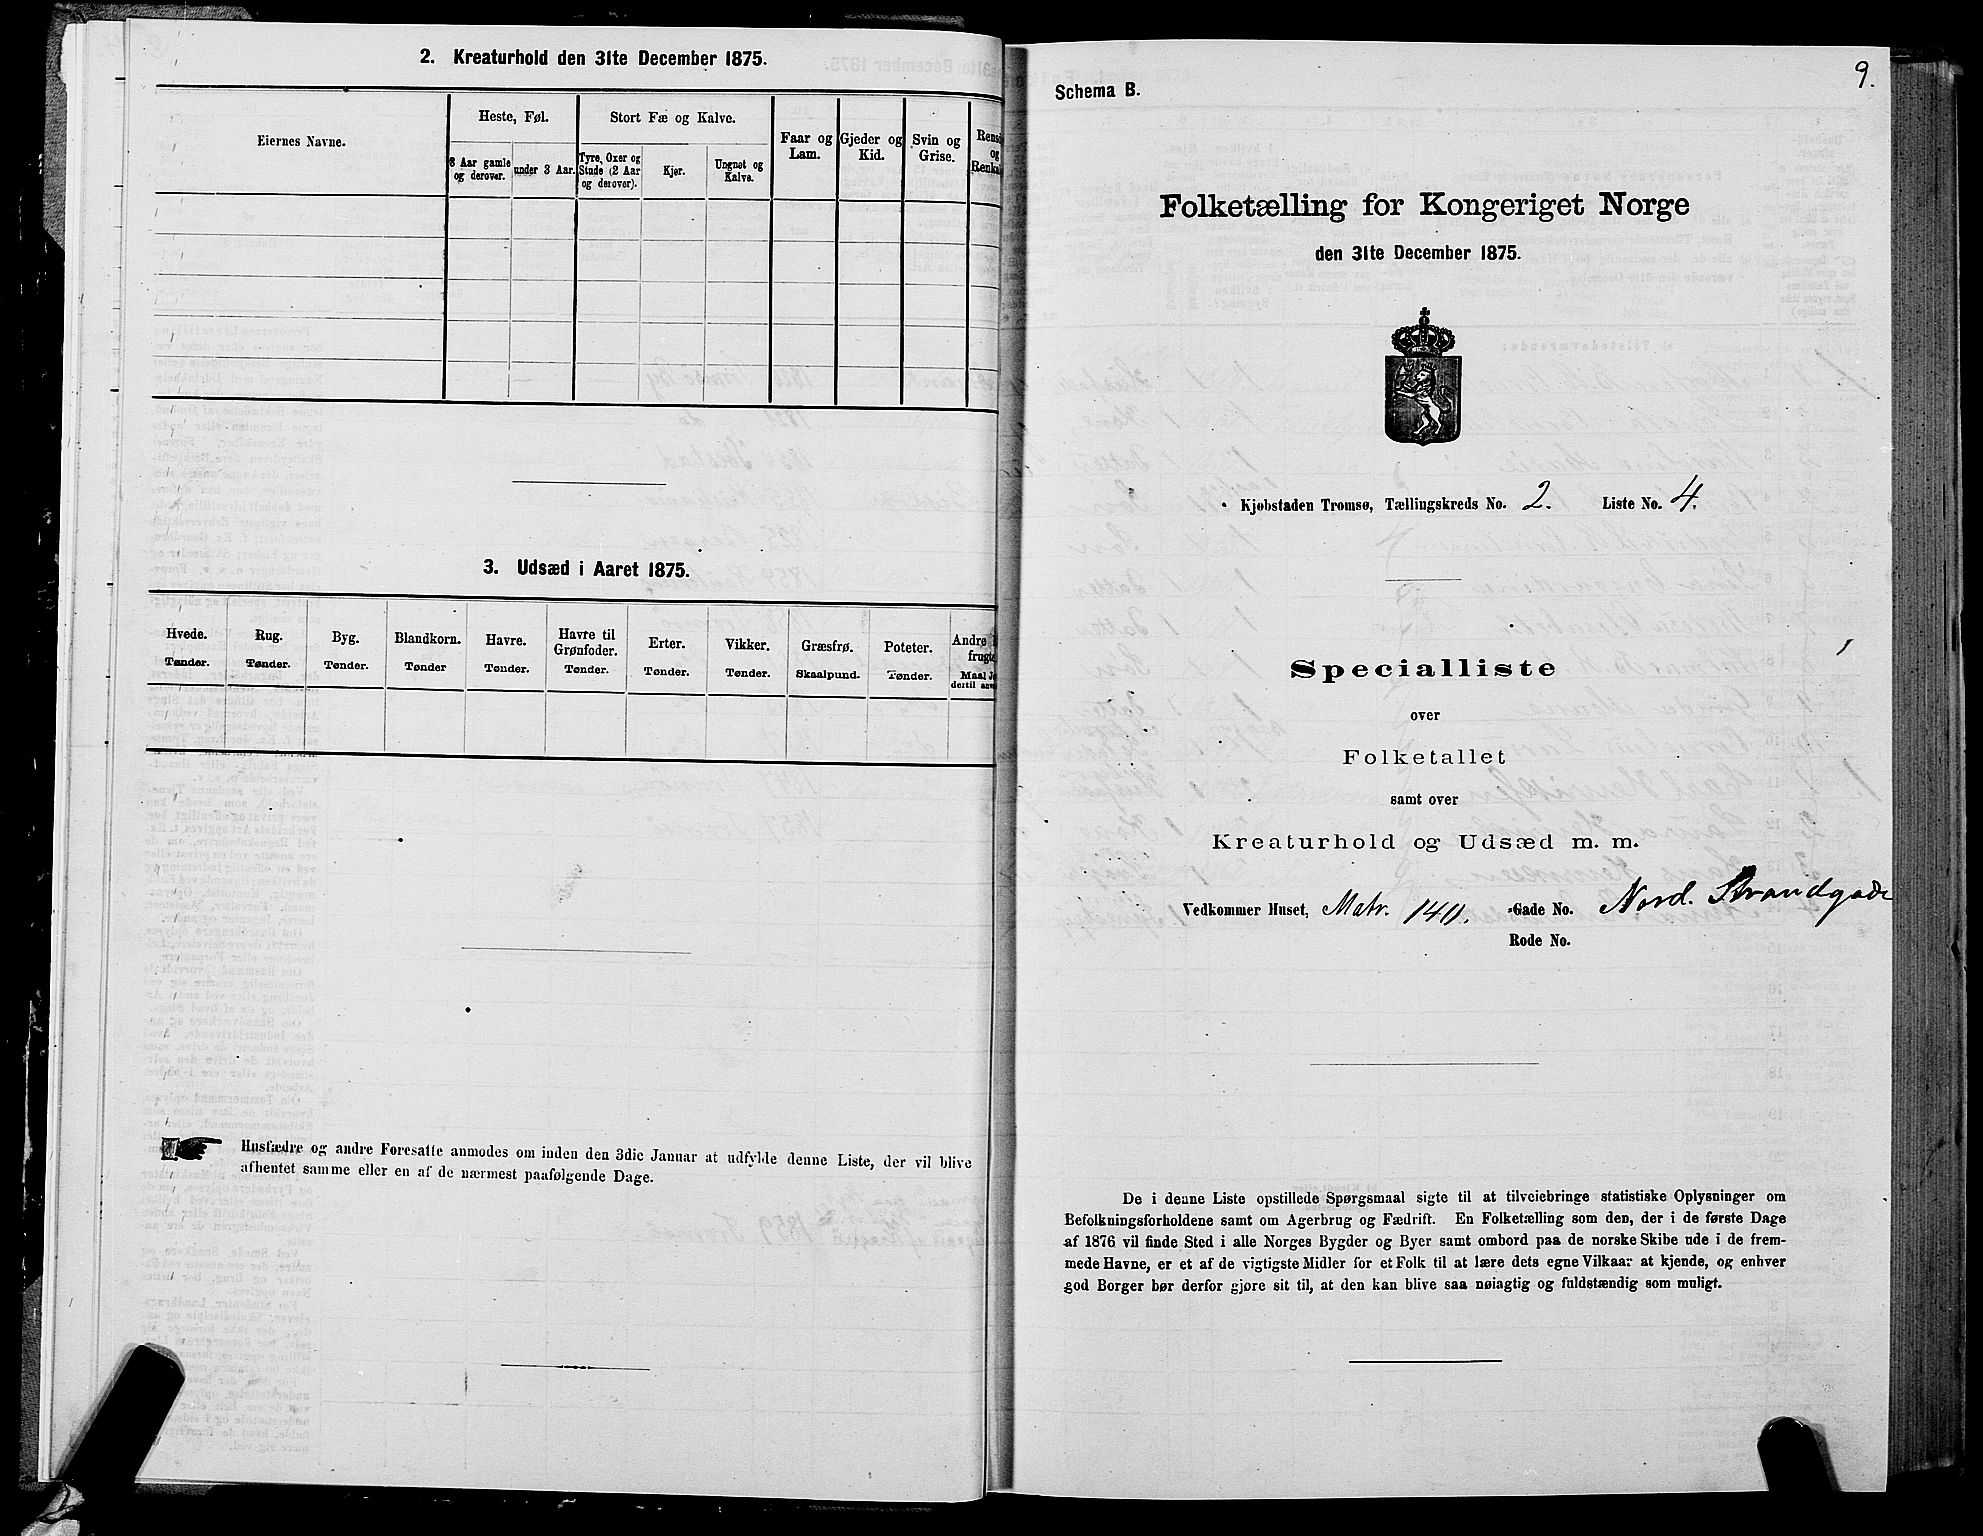 2. Kreaturhold den 31te December 1875.
Eiernes Navne.
Heste, Føl.
Stort Fæ og Kalve.
Faar og
Lam.
Gjeder og
Kid.
Svin og
Grise.
3 Aar gamle
og derover.
under 3 Aar.
Tyre, Oxer og
Stude (2 Aar
og derover).
Kjør.
Ungnøt og
Kalve.
3. Udsæd i Aaret 1875.
Hvede.
Tønder.
Rug.
Tønder.
Byg.
Tønder.
Blandkorn.
Tønder
Havre.
Tønder.
Havre til
Grønfoder.
Tønder.
Erter.
Tønder.
Vikker.
Tønder.
Græsfrø.
Skaalpund.
Poteter.
Tønder.
Andre
Husfædre og andre Foresatte anmodes om inden den 3die Januar at udfylde denne Liste, der vil blive
afhentet samme eller en af de nærmest paafølgende Dage.
9.
Schema B.
Folketælling for Kongeriget Norge
den 31te December 1875.
Kjøbstaden Tromsø, Tællingskreds No. 2. Liste No. 4.
Specialliste
over
Folketallet
samt over
Kreaturhold og Udsæd m. m.
Vedkommer Huset, Matr. 140. -Gade No. Nord. Strandgade
Rode No.
De i denne Liste opstillede Spørgsmaal sigte til at tilveiebringe statistiske Oplysninger om
Befolkningsforholdene samt om Agerbrug og Fædrift. En Folketælling som den, der i de første Dage
af 1876 vil finde Sted i alle Norges Bygder og Byer samt ombord paa de norske Skibe ude i de frem-
mede Havne, er et af de vigtigste Midler for et Folk til at lære dets egne Vilkaar at kjende, og enhver
god Borger bør derfor gjøre sit til, at den kan blive saa nøiagtig og fuldstændig som muligt.